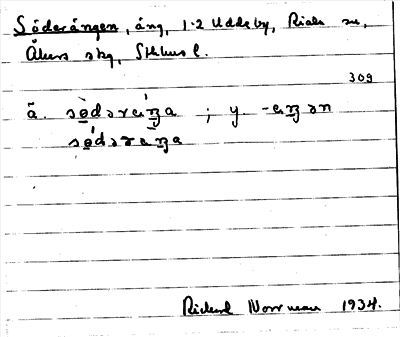 Söderängen, äng, 1-2 Uddeby, Riala sn,
Åkers skg, Sthlms l.
309
ä. södəräŋa ; y. -äŋən
södəräŋa
Rickard Norrman 1934.